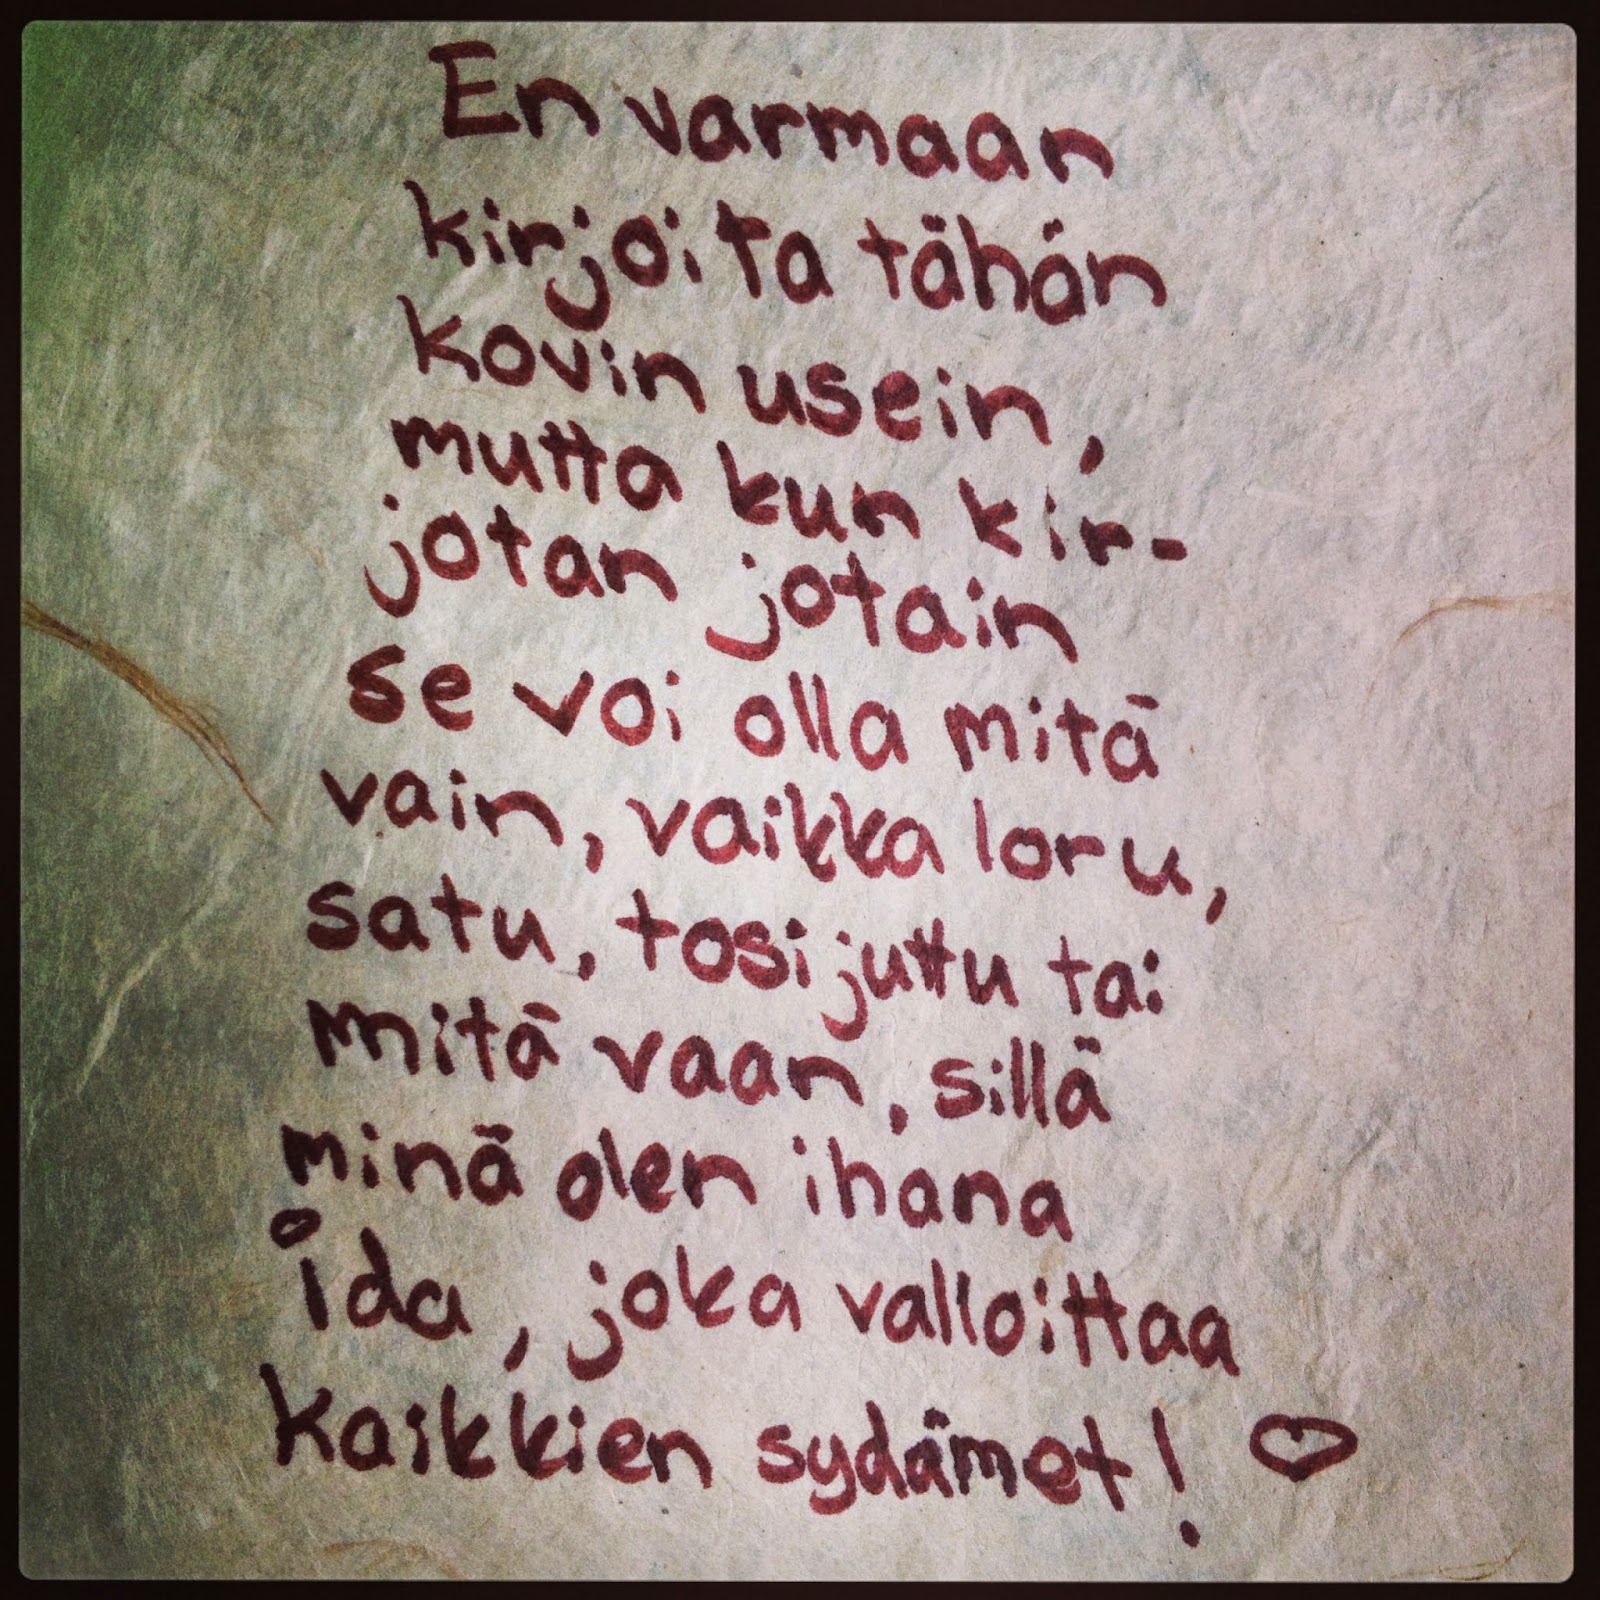 En varmaan
kirjoita tähän
kovin usein,
mutta kun kir-
jotan jotain
se voi olla mitä
vain, vaikka loru,
satu, tosijuttu tai
mitä vaan, sillä
minä olen ihana
Ida, joka valloittaa
kaikkien sydämet! ♡